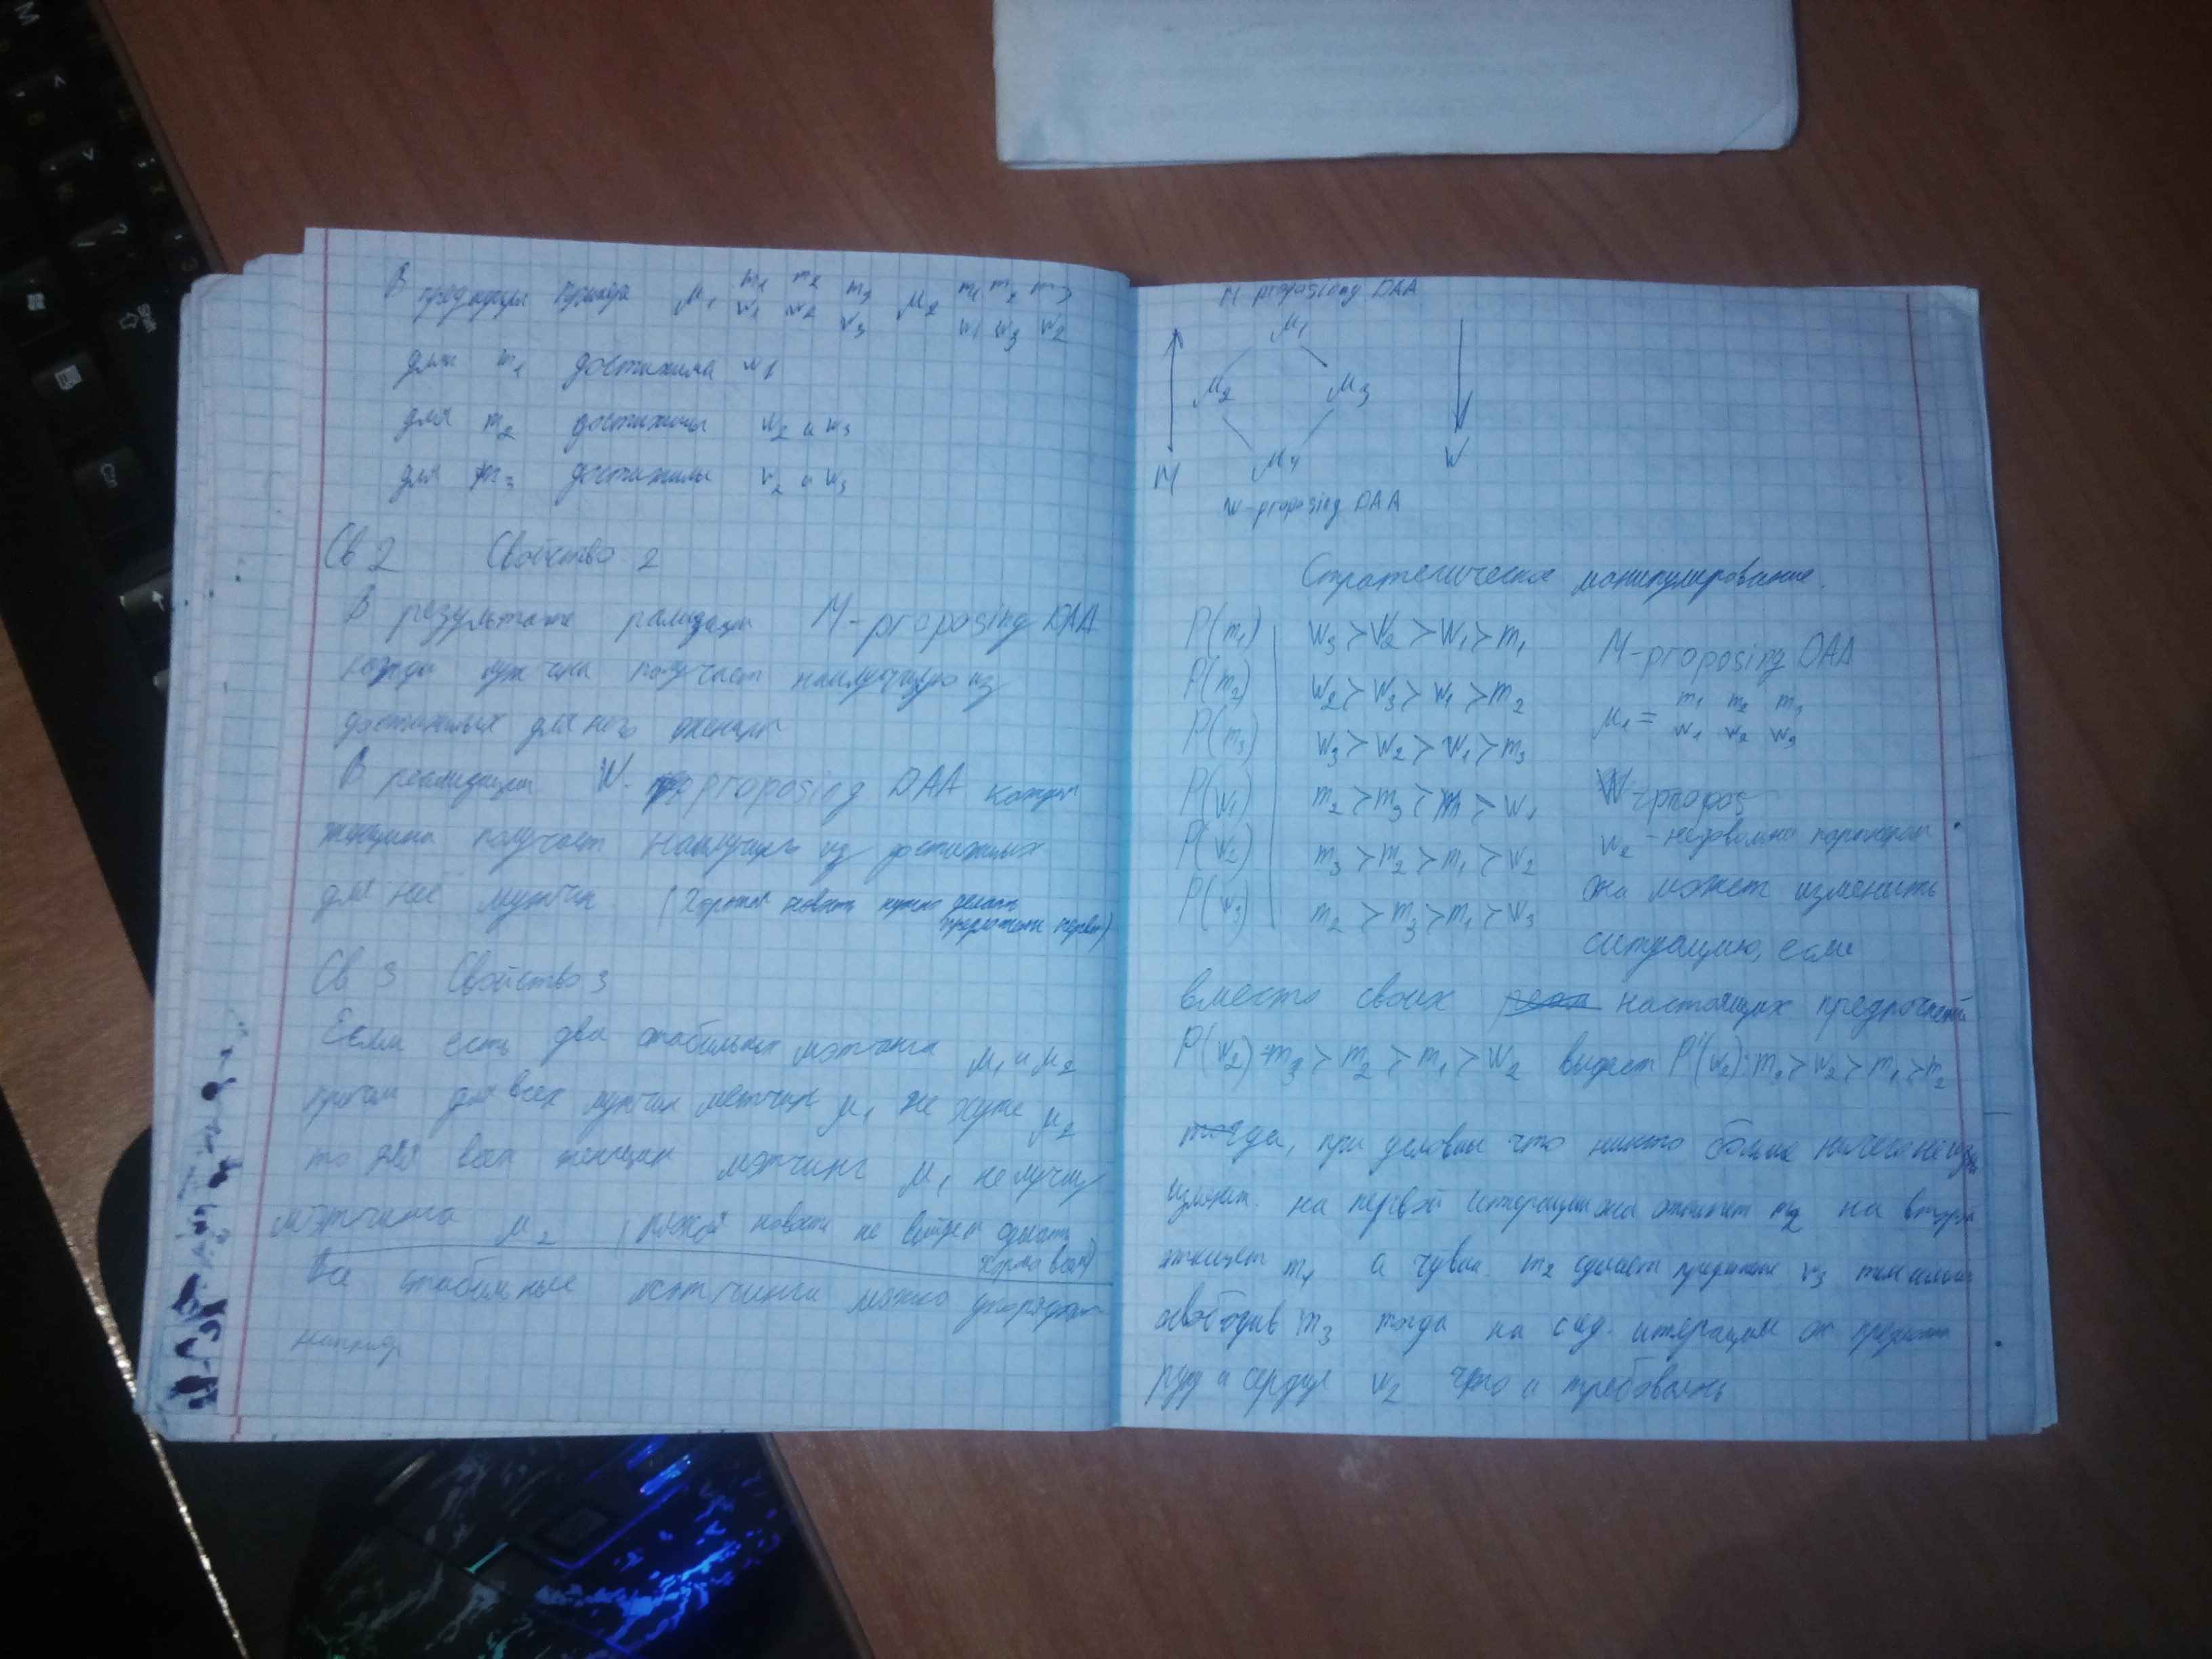 В предыдущ примере μ1 m1 m2 m3 μ2 m1 m2 m3
w1 w2 w3 w1 w3 w2
для m1 достижима w1
для m2 достижимы w2 и w3
для m3 достижимы w2 и w3
Св 2 Свойство 2
В результате M-proposing DAA
мужчина получает наилучшую из
достижимых для него женщин
В реализации W- proposing DAA каждая
женщина получает наилучшего из достижимых
для неё мужчин. (Хорошая новость нужно делать
предложение первым)
Св 3 Свойство 3
Если есть два стабильных мэтчинга μ1 и μ2
причем для всех мужчин мэтчинг μ1 не хуже μ2
то для всех женщин мэтчинг μ1 не лучше
мэтчинга μ2 (плохая новость не выйдет сделать
хорошо всем)
Все стабильные мэтчинги можно упорядочить
M proposing DAA
μ1
μ2 μ3
μ4
M W
W-proposing DAA
Стратегическое манипулирование.
P(m1) w3 > w2 > w1 > m1
P(m2) w2 > w3 > w1 > m2
P(m3) w3 > w2 > w1 > m3
P(w1) m2 > m3 > m1 > w1
P(w2) m3 > m2 > m1 > w2
P(w3) m2 > m3 > m1 > w3
M-proposing DAA
μ1 = m1 m2 m3
w1 w2 w3
W-propos
w2 - недовольна партнером
она может изменить
ситуацию, если
вместо своих настоящих предпочтений
P(w2) = m3 > m2 > m1 > w2 выдаст P'(w2): m3 > w2 > m1 > m2
тогда, при условии что никто больше ничего не
изменит. на первой итерации она отклонит m2 на второй
отклонит m1 а m2 сделает предложение w3 тем самым
освободив m3 тогда на след. итерации он предложит
руку и сердце w2 что и требовалось